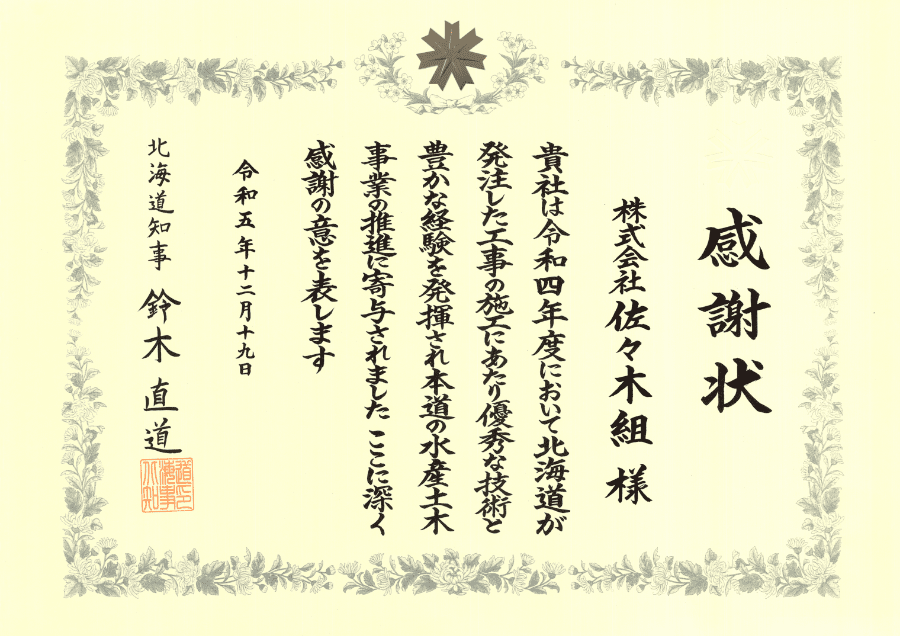 感謝状
株式会社佐々木組 様
貴社は令和四年度において北海道が
発注した工事の施工にあたり優秀な技術と
豊かな経験を発揮され本道の水産土木
事業の推進に寄与されました ここに深く
感謝の意を表します
令和五年十二月十九日
北海道知事 鈴木直道